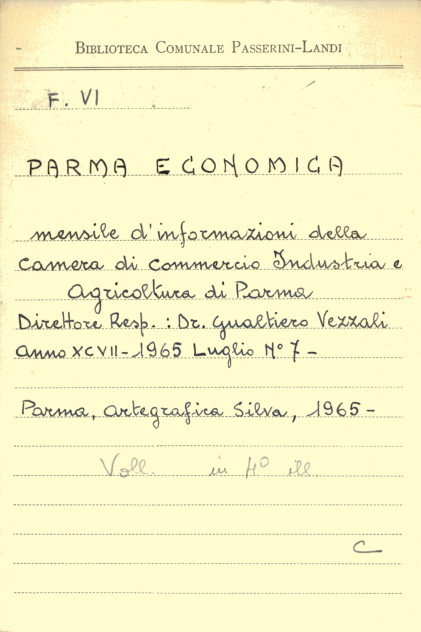 BIBLIOTECA COMUNALE PASSERINI-LANDI
F. VI
PARMA ECONOMICA
mensile d'informazioni della
Camera di Commercio Industria e
Agricoltura di Parma
Direttore Resp. : Dr. Gualtiero Vezzali
Anno XCVII - 1965 Luglio N° 7 -
Parma, Artegrafica Silva, 1965 -
Voll. in 4° ill
C